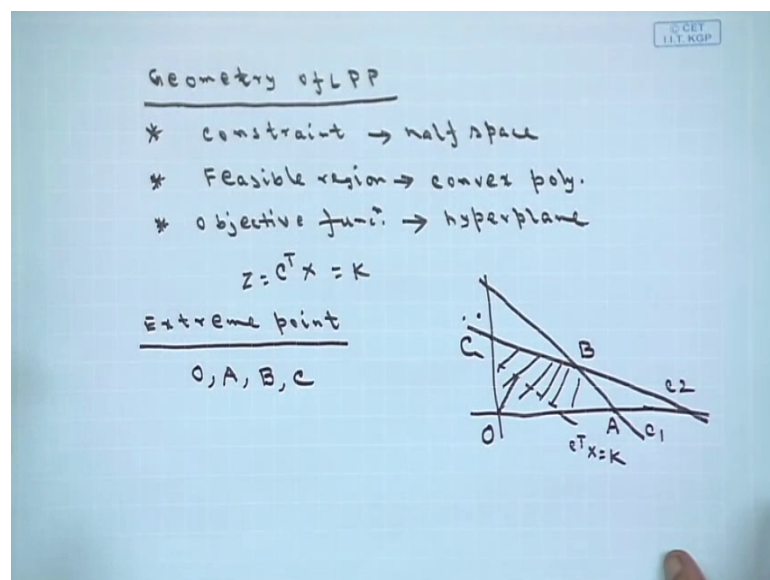 © CET
I.I.T. KGP
Geometry of LPP
* constraint → half space
* Feasible region → convex poly.
* Objective func. → hyperplane
Z = C^T X = K
Extreme point
O, A, B, C
C
B
C2
O
A
C1
C^T X = K